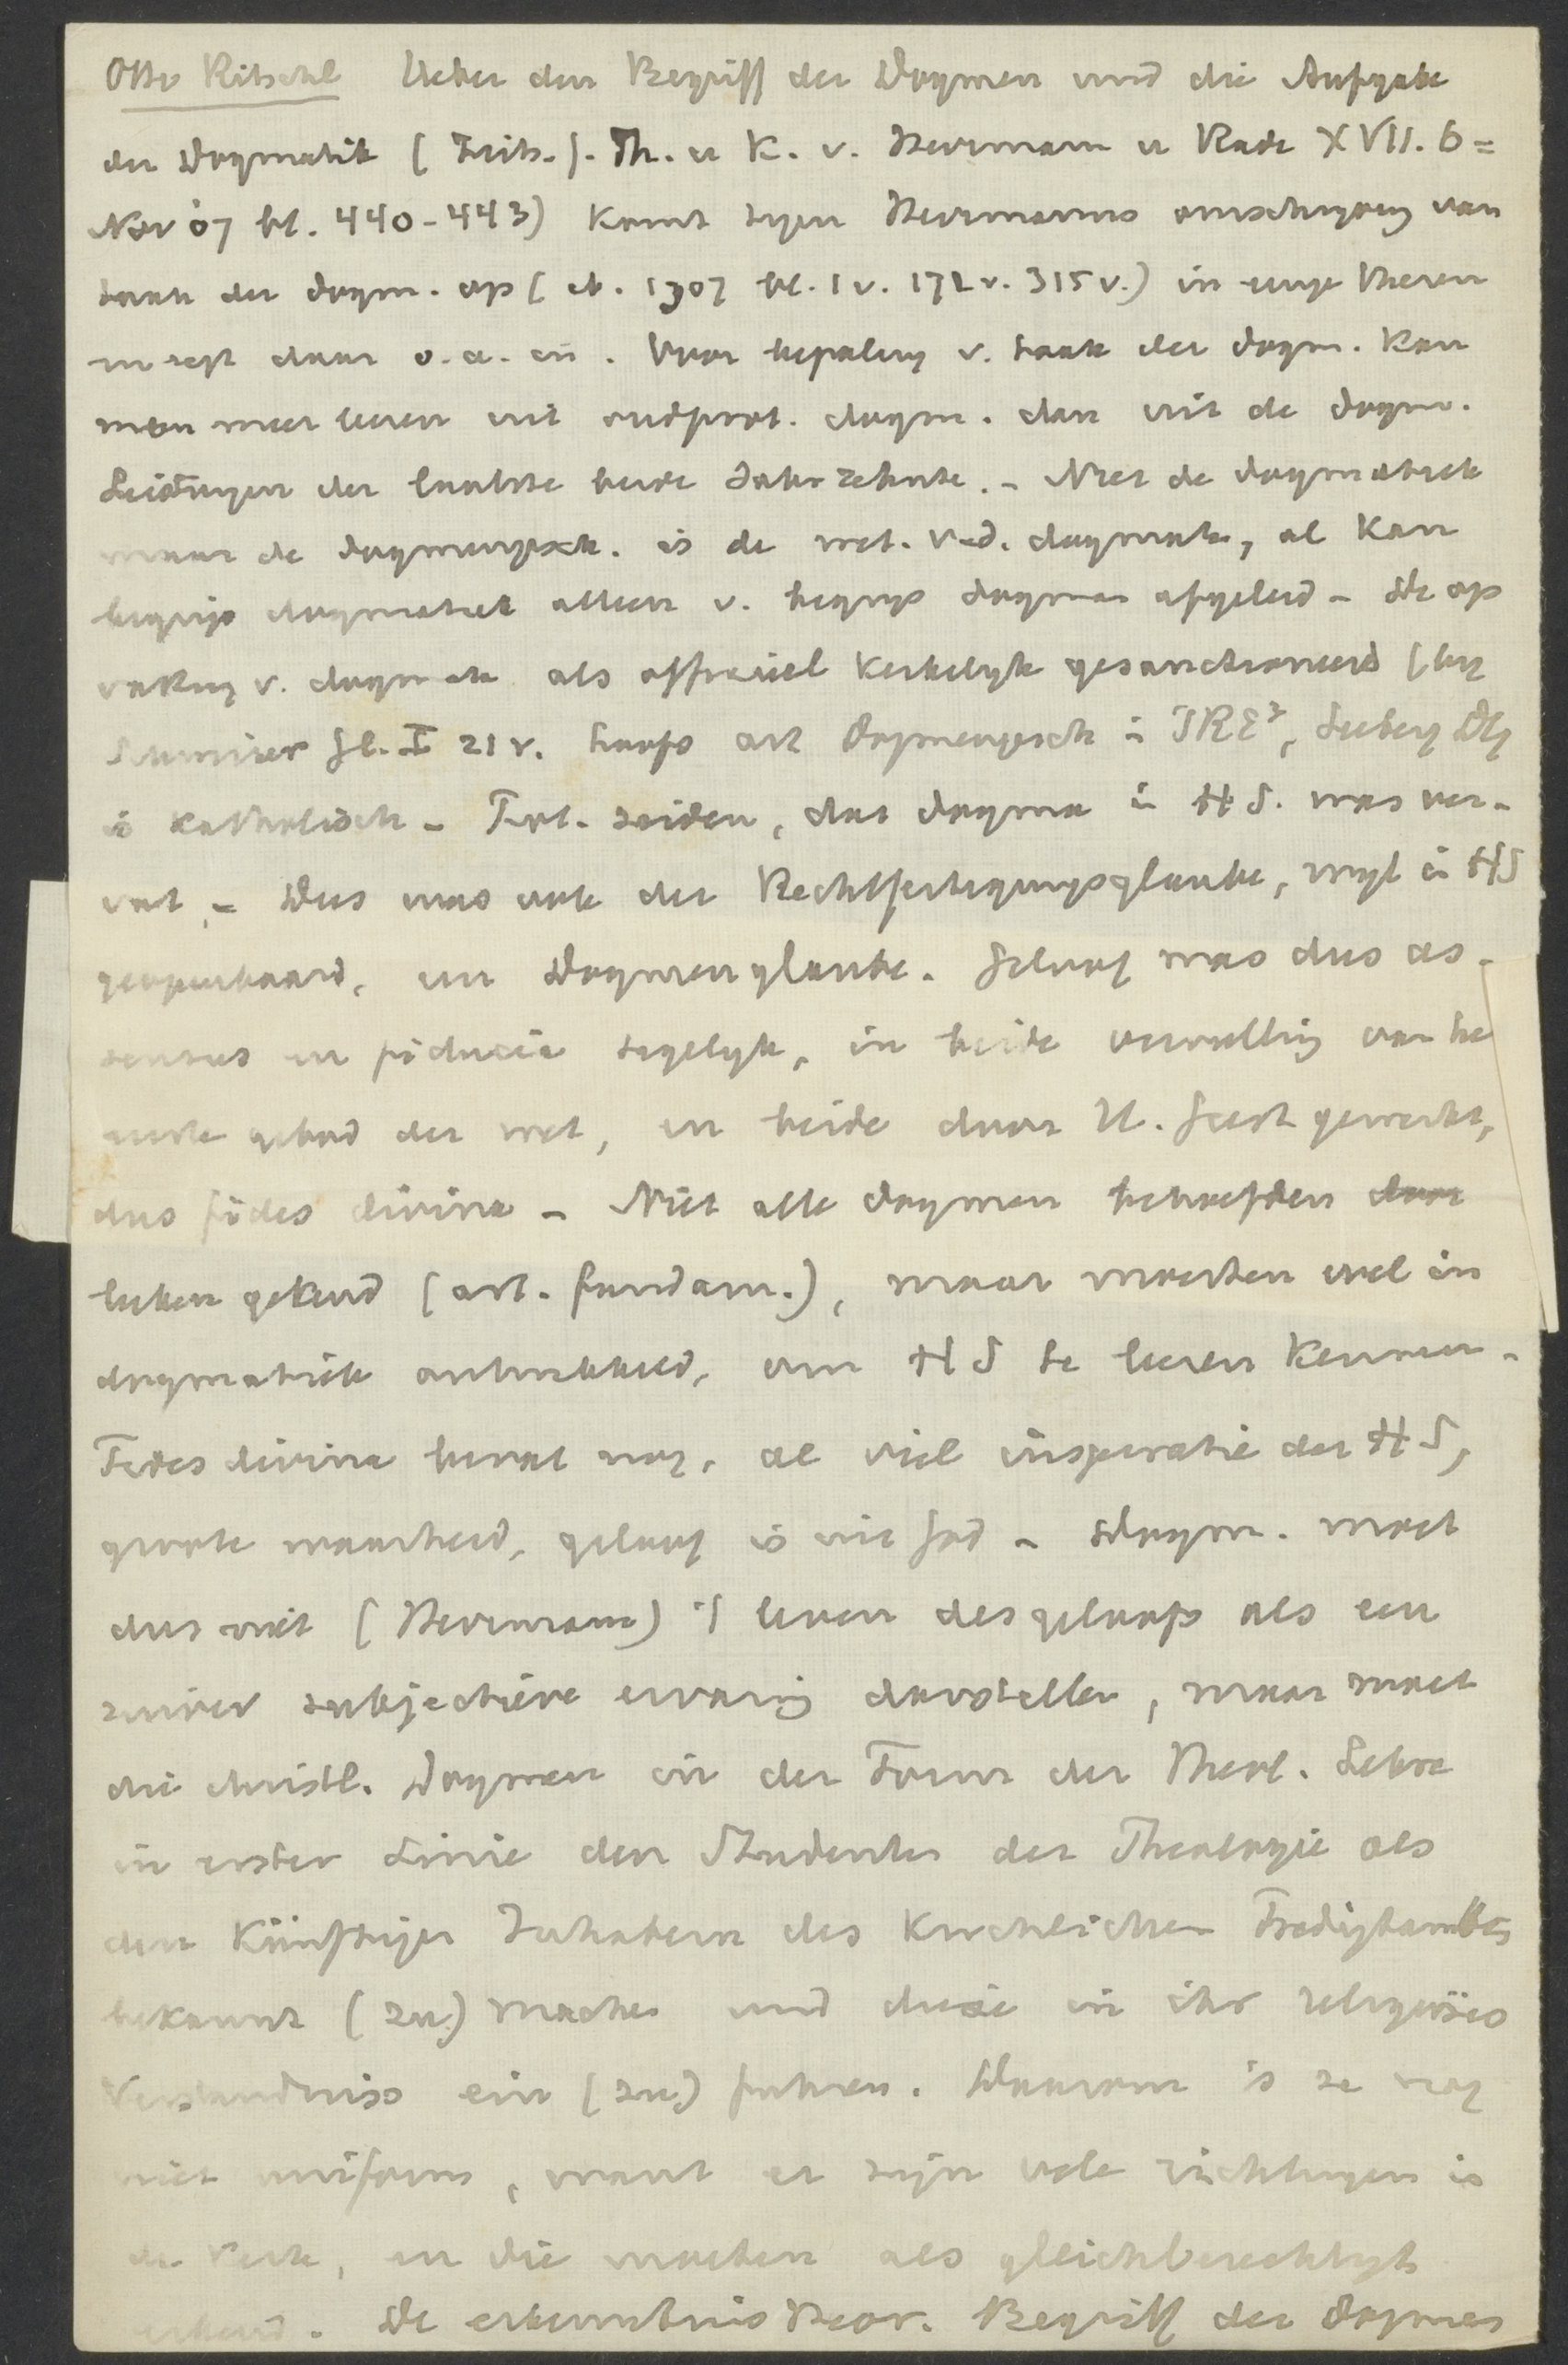 Otto Ritschl Ueber den Begriff der Dogmen und die Aufgabe
der Dogmatik (Zeits. f. Th. u K. v. Herrmann u Rade XVII. 6 =
Nov 07 bl. 440-443) komt tegen Herrmanns omschrijving van
taak der dogm. op (ib. 1907 bl. 1 v. 172 v. 315 v.) in enige Thesen
en zegt daar o.a. in. Voor bepaling v. taak der dogm. kan
men meer leeren uit oudprot. dogm. dan uit de dogm.
Leistungen der laatste beide Jahrzehnte. - Niet de dogmatiek
maar de dogmengesch. is de wet. v. d. dogmata, al kan
begrip dogmatiek alleen v. begrip dogma afgeleid - De op
vatting v. dogmata als officieel kerkelijk gesanctioneerd (bij
I 21 v. Loofs art Dogmengesch in PRE³, Seeberg Dg
is katholisch - Prot. zeiden, dat dogma in H S. was ver-
vat, - Dus was ook der Rechtfertigungsglaube, wijl in HS
geopenbaard, een Dogmenglaube. Geloof was dus as-
sensus en fiducia tegelijk, in beide vervulling van he
eerste gebod der wet, en beide door H. Geest gewerkt,
dus fides divina - Niet alle dogmen behoefden door
leeken gekend (art. fundam.), maar moesten wel in
dogmatiek ontwikkeld, om HS te leeren kennen -
Fides divina bevat nog, al viel inspiratie der HS,
groote waarheid, geloof is uit God - Dogm. moet
dus niet (Herrmann) 't leven des geloofs als een
zuiver subjectieve ervaring voorstellen, maar moet
die christl. Dogmen in der Form der Theol. Lehre
in erster Linie den Studenten der Theologie als
den künftigen Inhabern des kirchlichen Predigtamtes
bekannt (zu) machen und diese in ihr religiöses
Verständniss ein (zu) führen. Daarom is ze nog
niet uniform, want er zijn vele richtingen in
de Kerk, en die moeten als gleichberechtigt
erkend. De erkenntnistheor. Begriff der Dogmen